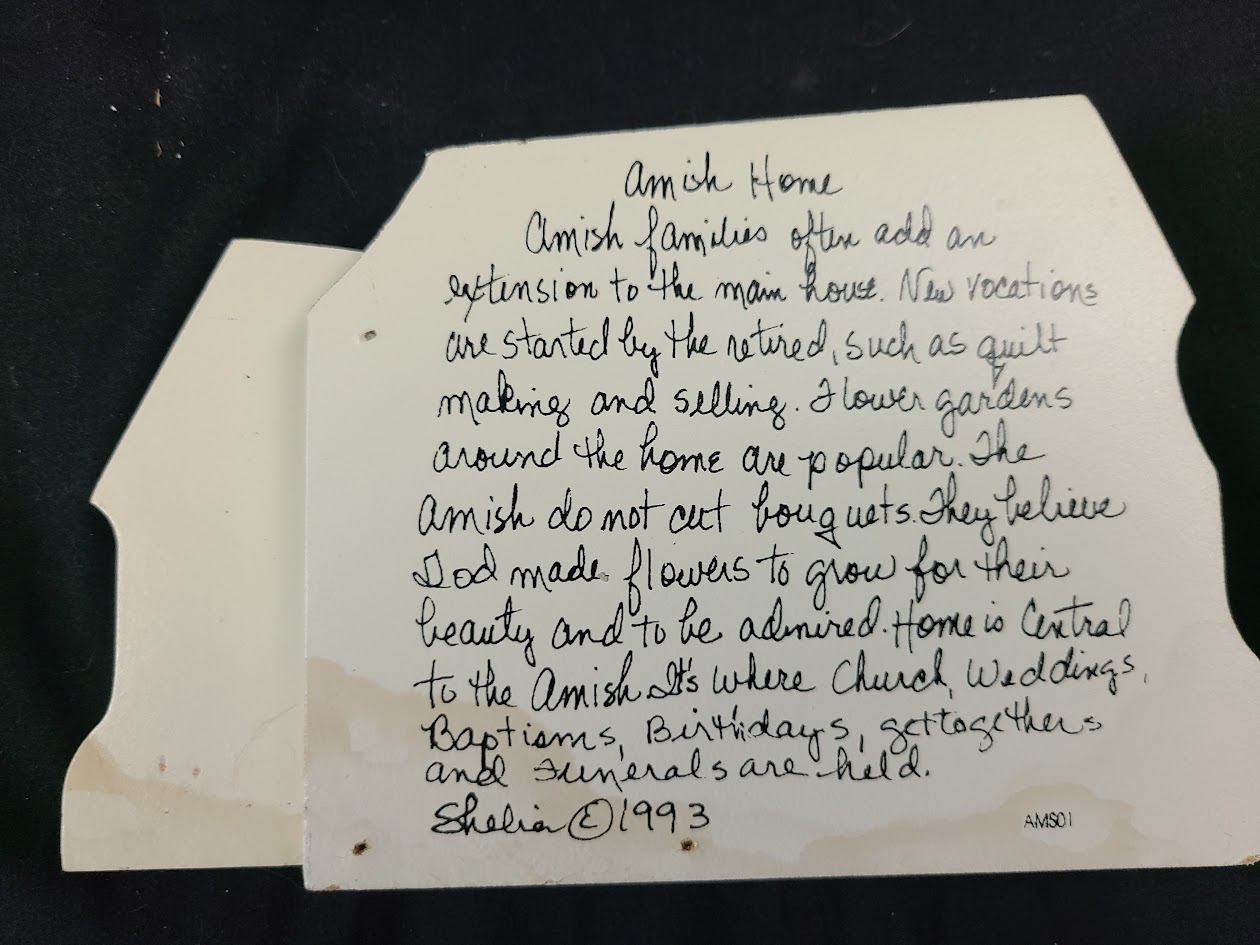 Amish Home
Amish families often add an
extension to the main house. New vocations
are started by the retired, such as quilt
making and selling. Flower gardens
around the home are popular. The
Amish do not cut bouquets. They believe
God made flowers to grow for their
beauty and to be admired. Home is Central
to the Amish. It's where Church, Weddings,
Baptisms, Birthdays, gettogethers
and Funerals are held.
Shelia © 1993
AMS01